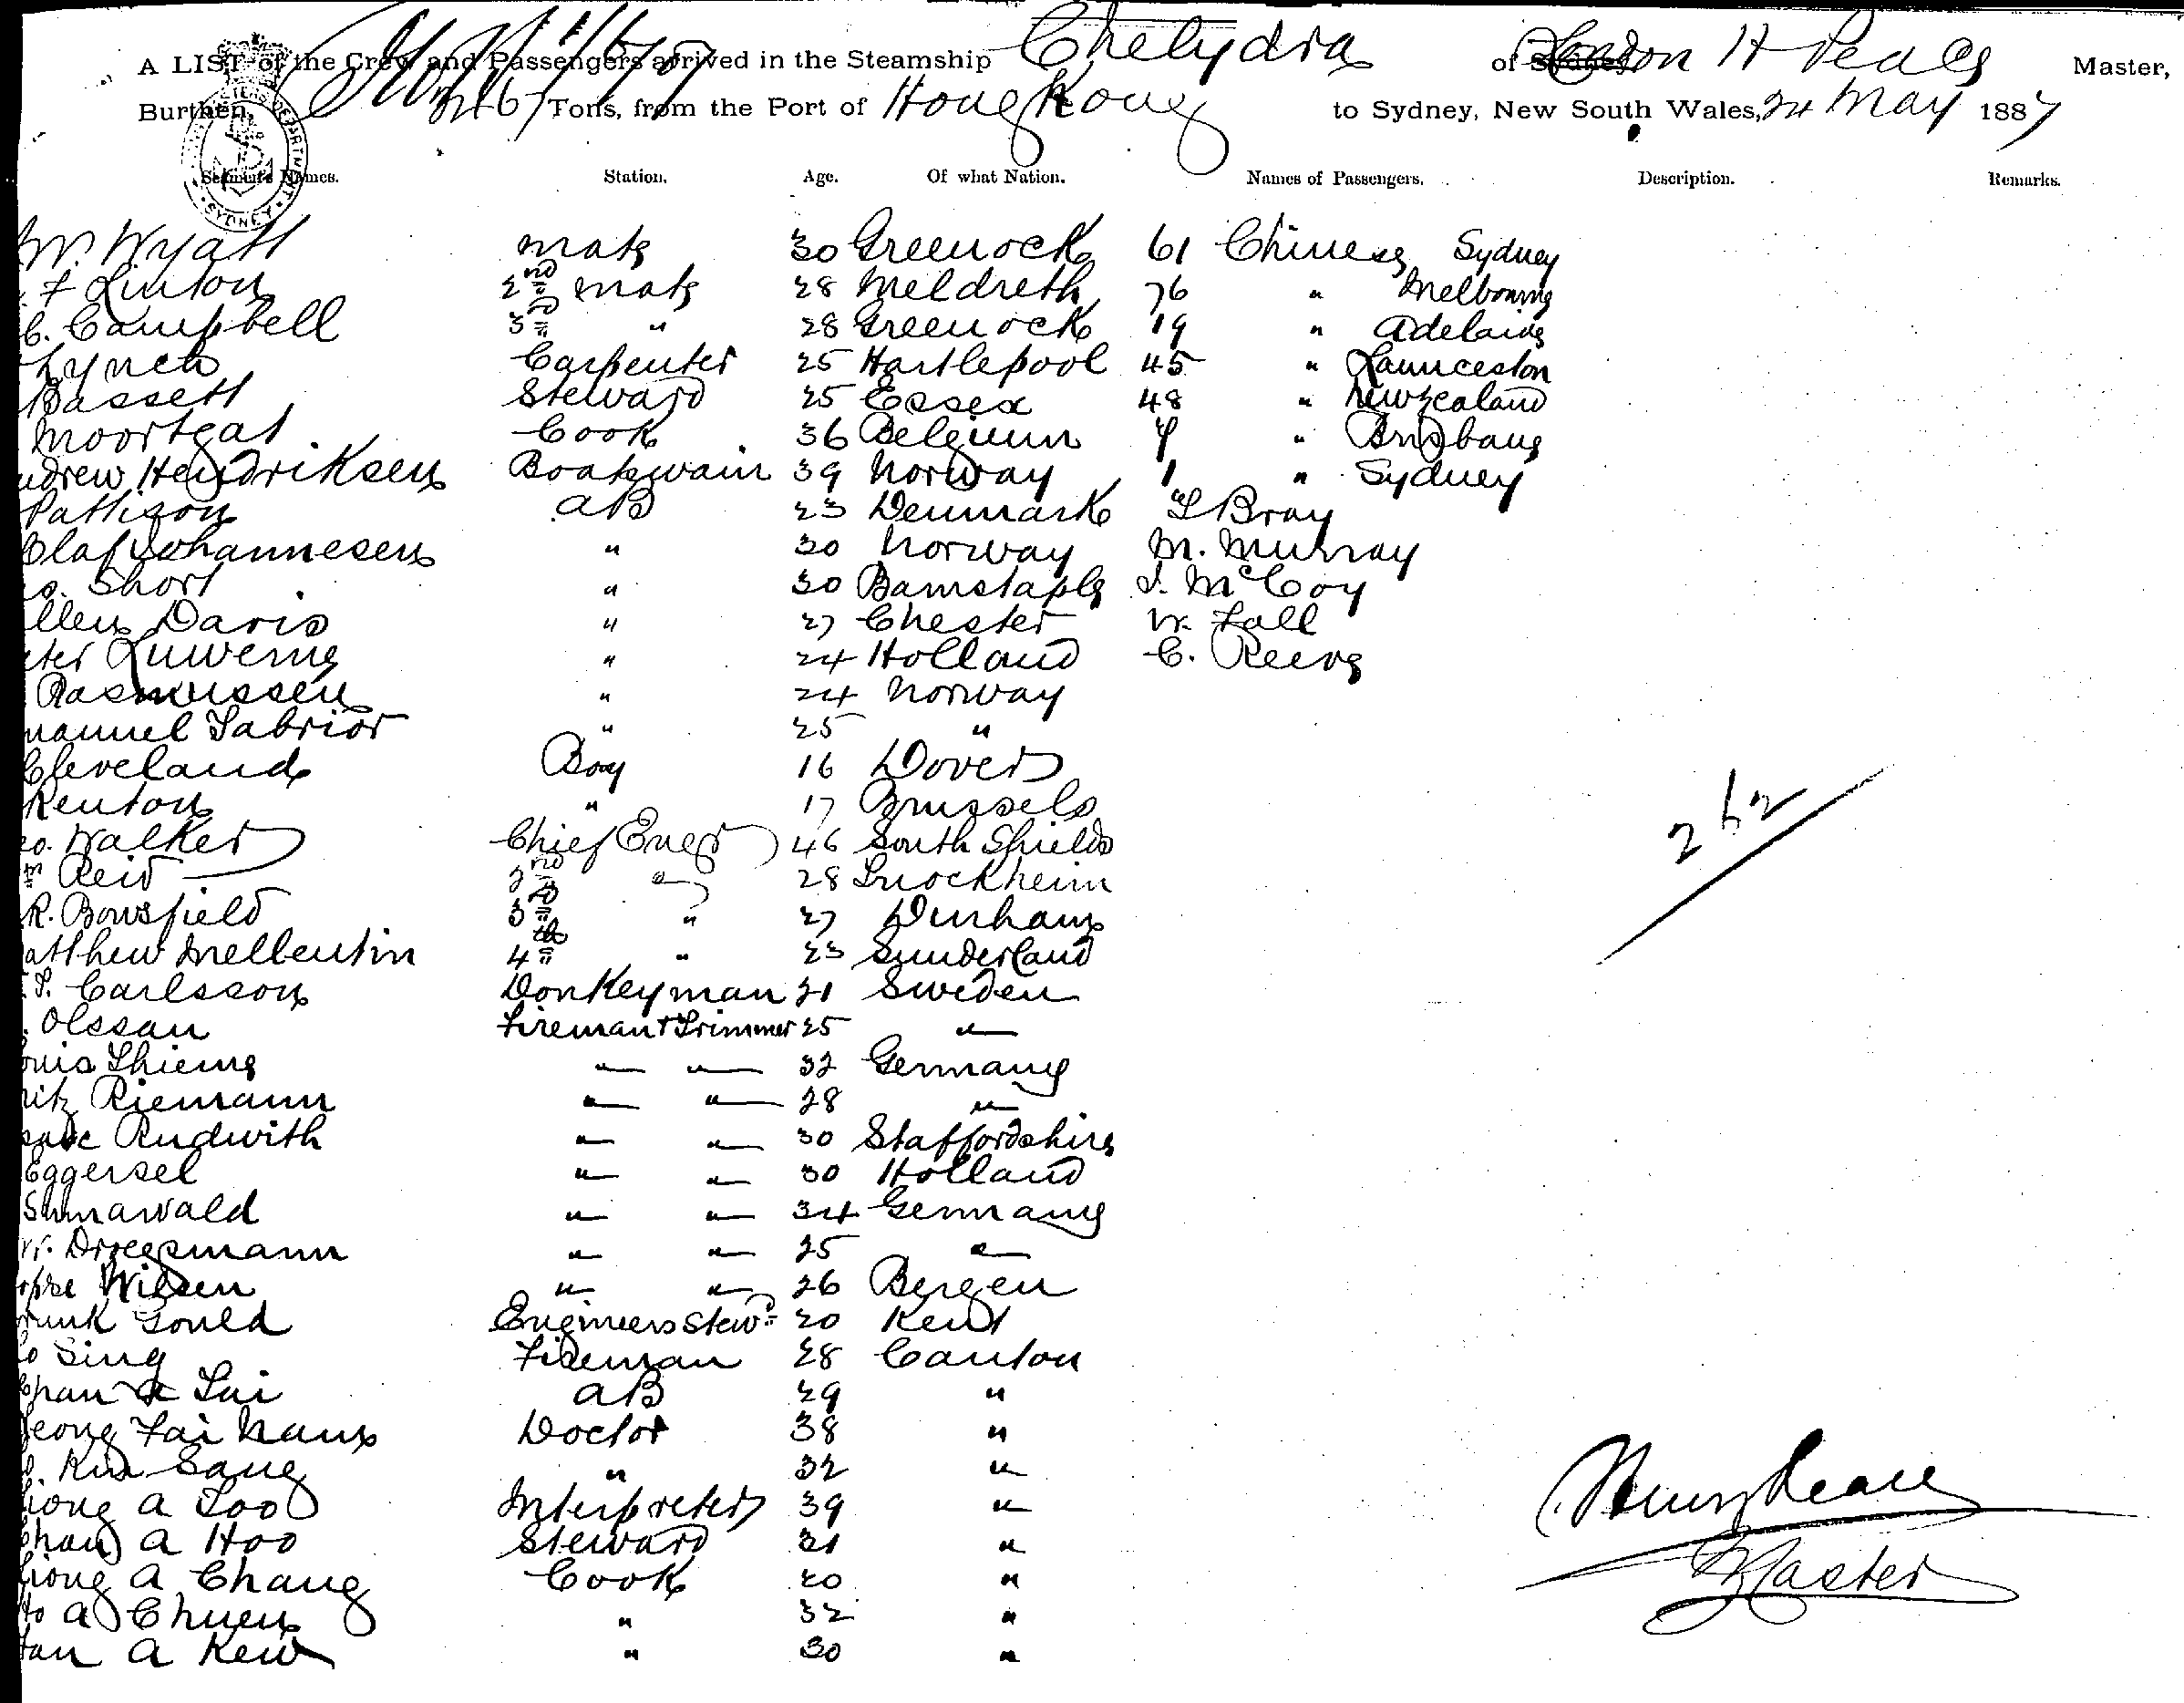 A LIST of the Crew and Passengers arrived in the Steamship Chelydra of Sydney London H Peace Master,
Burthen, Tons, from the Port of Hong Kong to Sydney, New South Wales, 24 May 1887
Seamen's Names. Station. Age. Of what Nation. Names of Passengers. Description. Remarks.
Wyatt mate 30 Greenock 61 Chinese Sydney
F Linton 2nd mate 28 Meldreth 76 " Melbourne
C. Campbell 3rd " 28 Greenock 19 " Adelaide
Lynch Carpenter 25 Hartlepool 45 " Launceston
Bassett Steward 25 Essex 48 " New Zealand
Moortgat Cook 36 Belgium " Brisbane
ndrew Hendriksen Boatswain 39 Norway 1 " Sydney
Pattison AB 23 Denmark Bray
Olaf Johannesen " 30 Norway M. Murray
Short " 30 Barnstaple McCoy
llen Davis " 27 Chester W. Fall
eter Luwerne " 24 Holland C. Reeve
Rasmussen " 24 Norway
manuel Tabrior " 25 "
Cleveland Boy 16 Dover
Renton " 17 Brussels
eo. Walker Chief Engr 46 South Shields
m Reid 2nd " 28
R. Bousfield 3rd " 27 Durham
atthew Mellentin 4th " 23 Sunderland
Carlsson Donkeyman 31 Sweden
Olssan Fireman & Trimmer 25 "
ouis Thieme " " 32 Germany
ritz Riemann " " 28 "
Rudwith " " 30 Staffordshire
Eggersel " " 30 Holland
" " 34 Germany
Droegemann " " 25 "
Wilsen " " 26 Bergen
rank Gould Engineers Stewd 20 Kent
Sing Fireman 28 Canton
Chan A Tai AB 29 "
eong Fai Nam Doctor 38 "
Kin Sang " 32 "
iong A Soo Interpreter 39 "
Chan A Hoo Steward 31 "
iong A Chang Cook 20 "
Ho A Chuen " 32 "
an A Kew " 30 "
262
Henry Peace
Master
SYDNEY